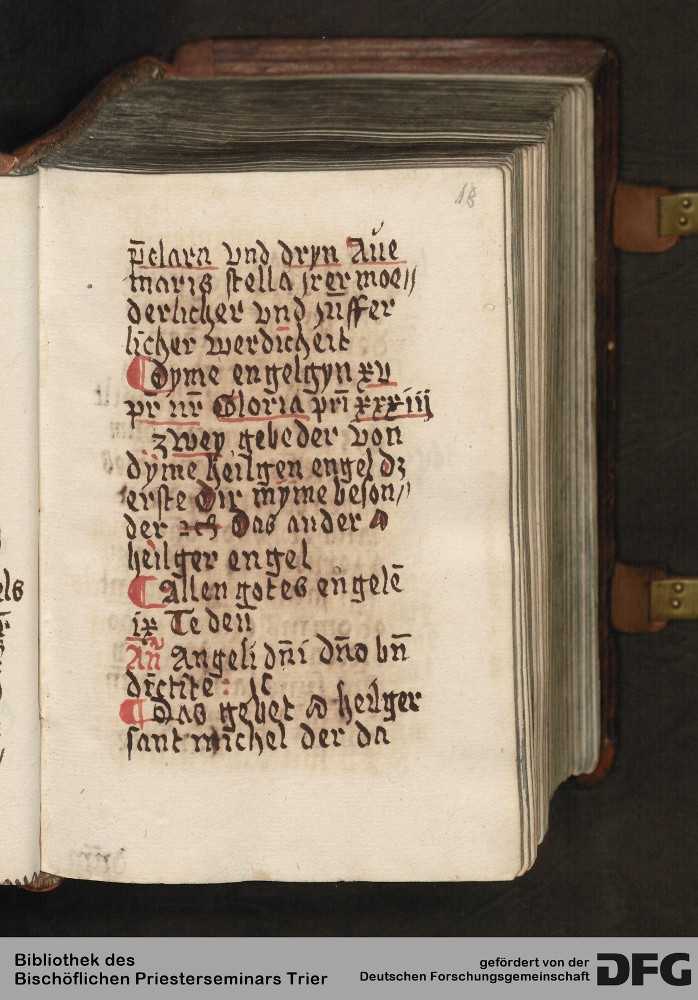 18
p̄clara vnd dryn Aue
maris stella jrer moe//
derlicher vnd jūffer
licher werdicheit
Dyme engelgyn xv
pr̄ nr̄ Gloria pri xxxiij
zwey gebeder von
dyme heilgen engel dz
erste Dir myme beson//
der Das ander O
heilger engel
Allen gotes engelē
ix Te deū
An̄ Angeli dn̄i dn̄o bn̄
dictite : 
Das gebet O heilger
sant michel der da
els
Bibliothek des
Bischöflichen Priesterseminars Trier
gefördert von der
Deutschen Forschungsgemeinschaft
DFG